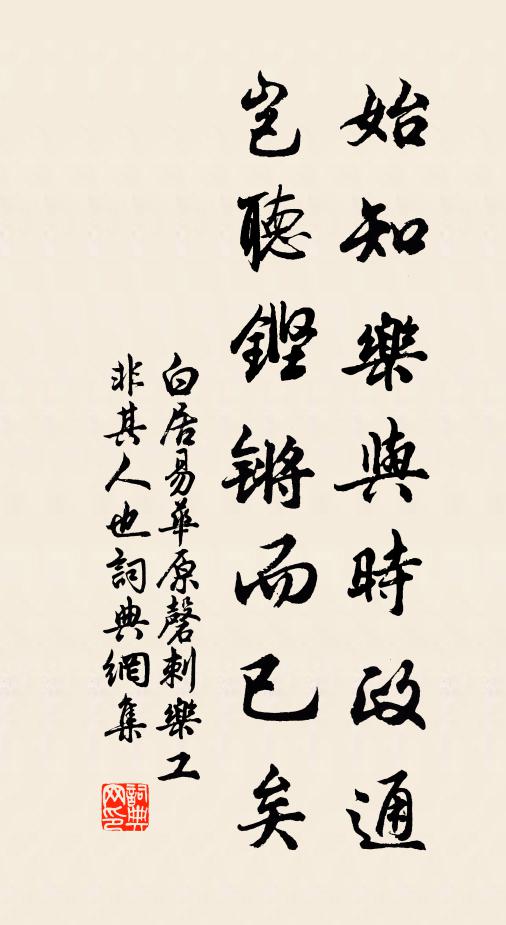 始知樂與時政通
豈聽鏗鏘而已矣
白居易華原磬刺樂工
非其人也詞典網集
詞典网印